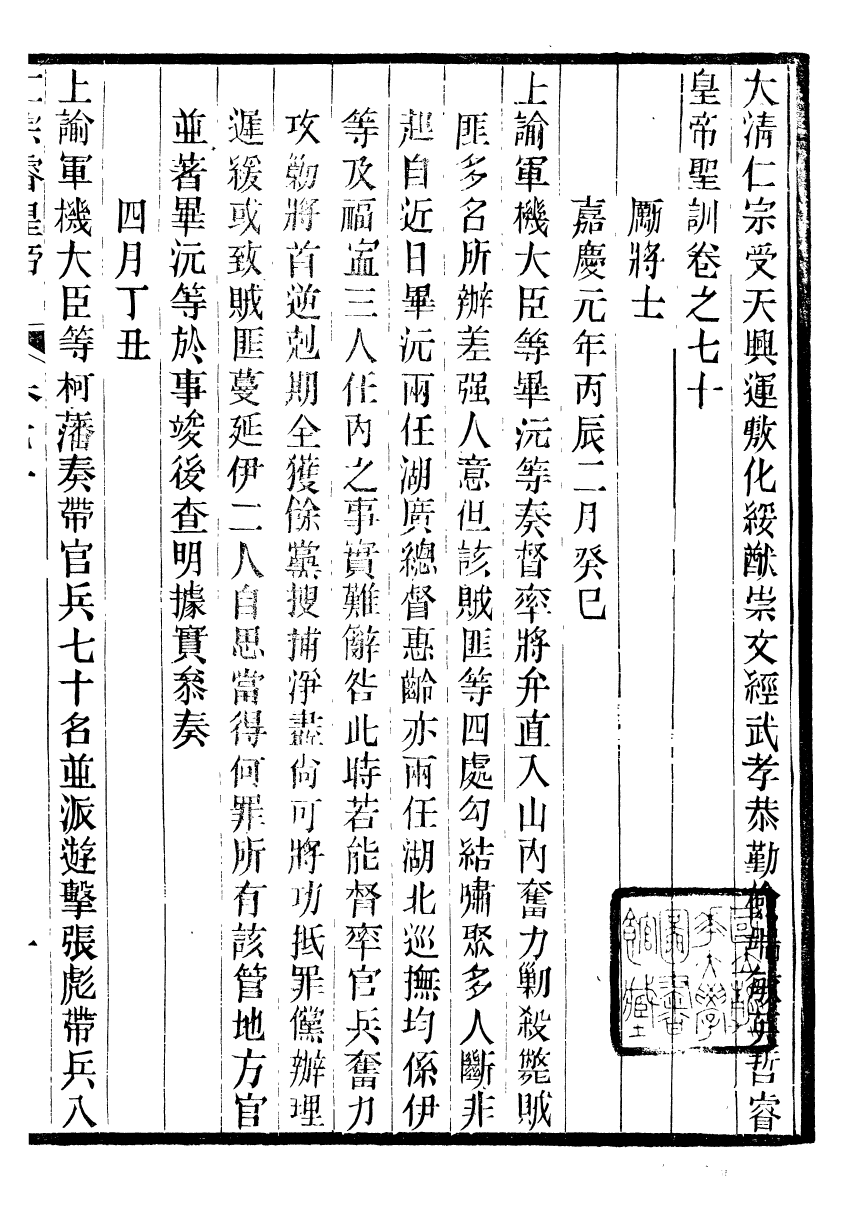 大清仁宗受天興運敷化綏猷崇文經武孝恭勤儉端敏英哲睿
皇帝聖訓卷之七十
勵將士
嘉慶元年丙辰二月癸巳
上諭軍機大臣等畢沅等奏督率將弁直入山內奮力勦殺斃賊
匪多名所辦差强人意但該賊匪等四處勾結嘯聚多人斷非
起自近日畢沅兩任湖廣總督惠齡亦兩任湖北巡撫均係伊
等及福寧三人任內之事實難辭咎此時若能督率官兵奮力
攻勦將首逆剋期全獲餘黨搜捕淨盡尚可將功抵罪儻辦理
遲緩或致賊匪蔓延伊二人自思當得何罪所有該管地方官
並著畢沅等於事竣後查明據實叅奏
四月丁丑
上諭軍機大臣等柯藩奏帶官兵七十名並派遊擊張彪帶兵八
仁宗睿皇帝
卷七十
一
國立北
平大學
圖書
館藏